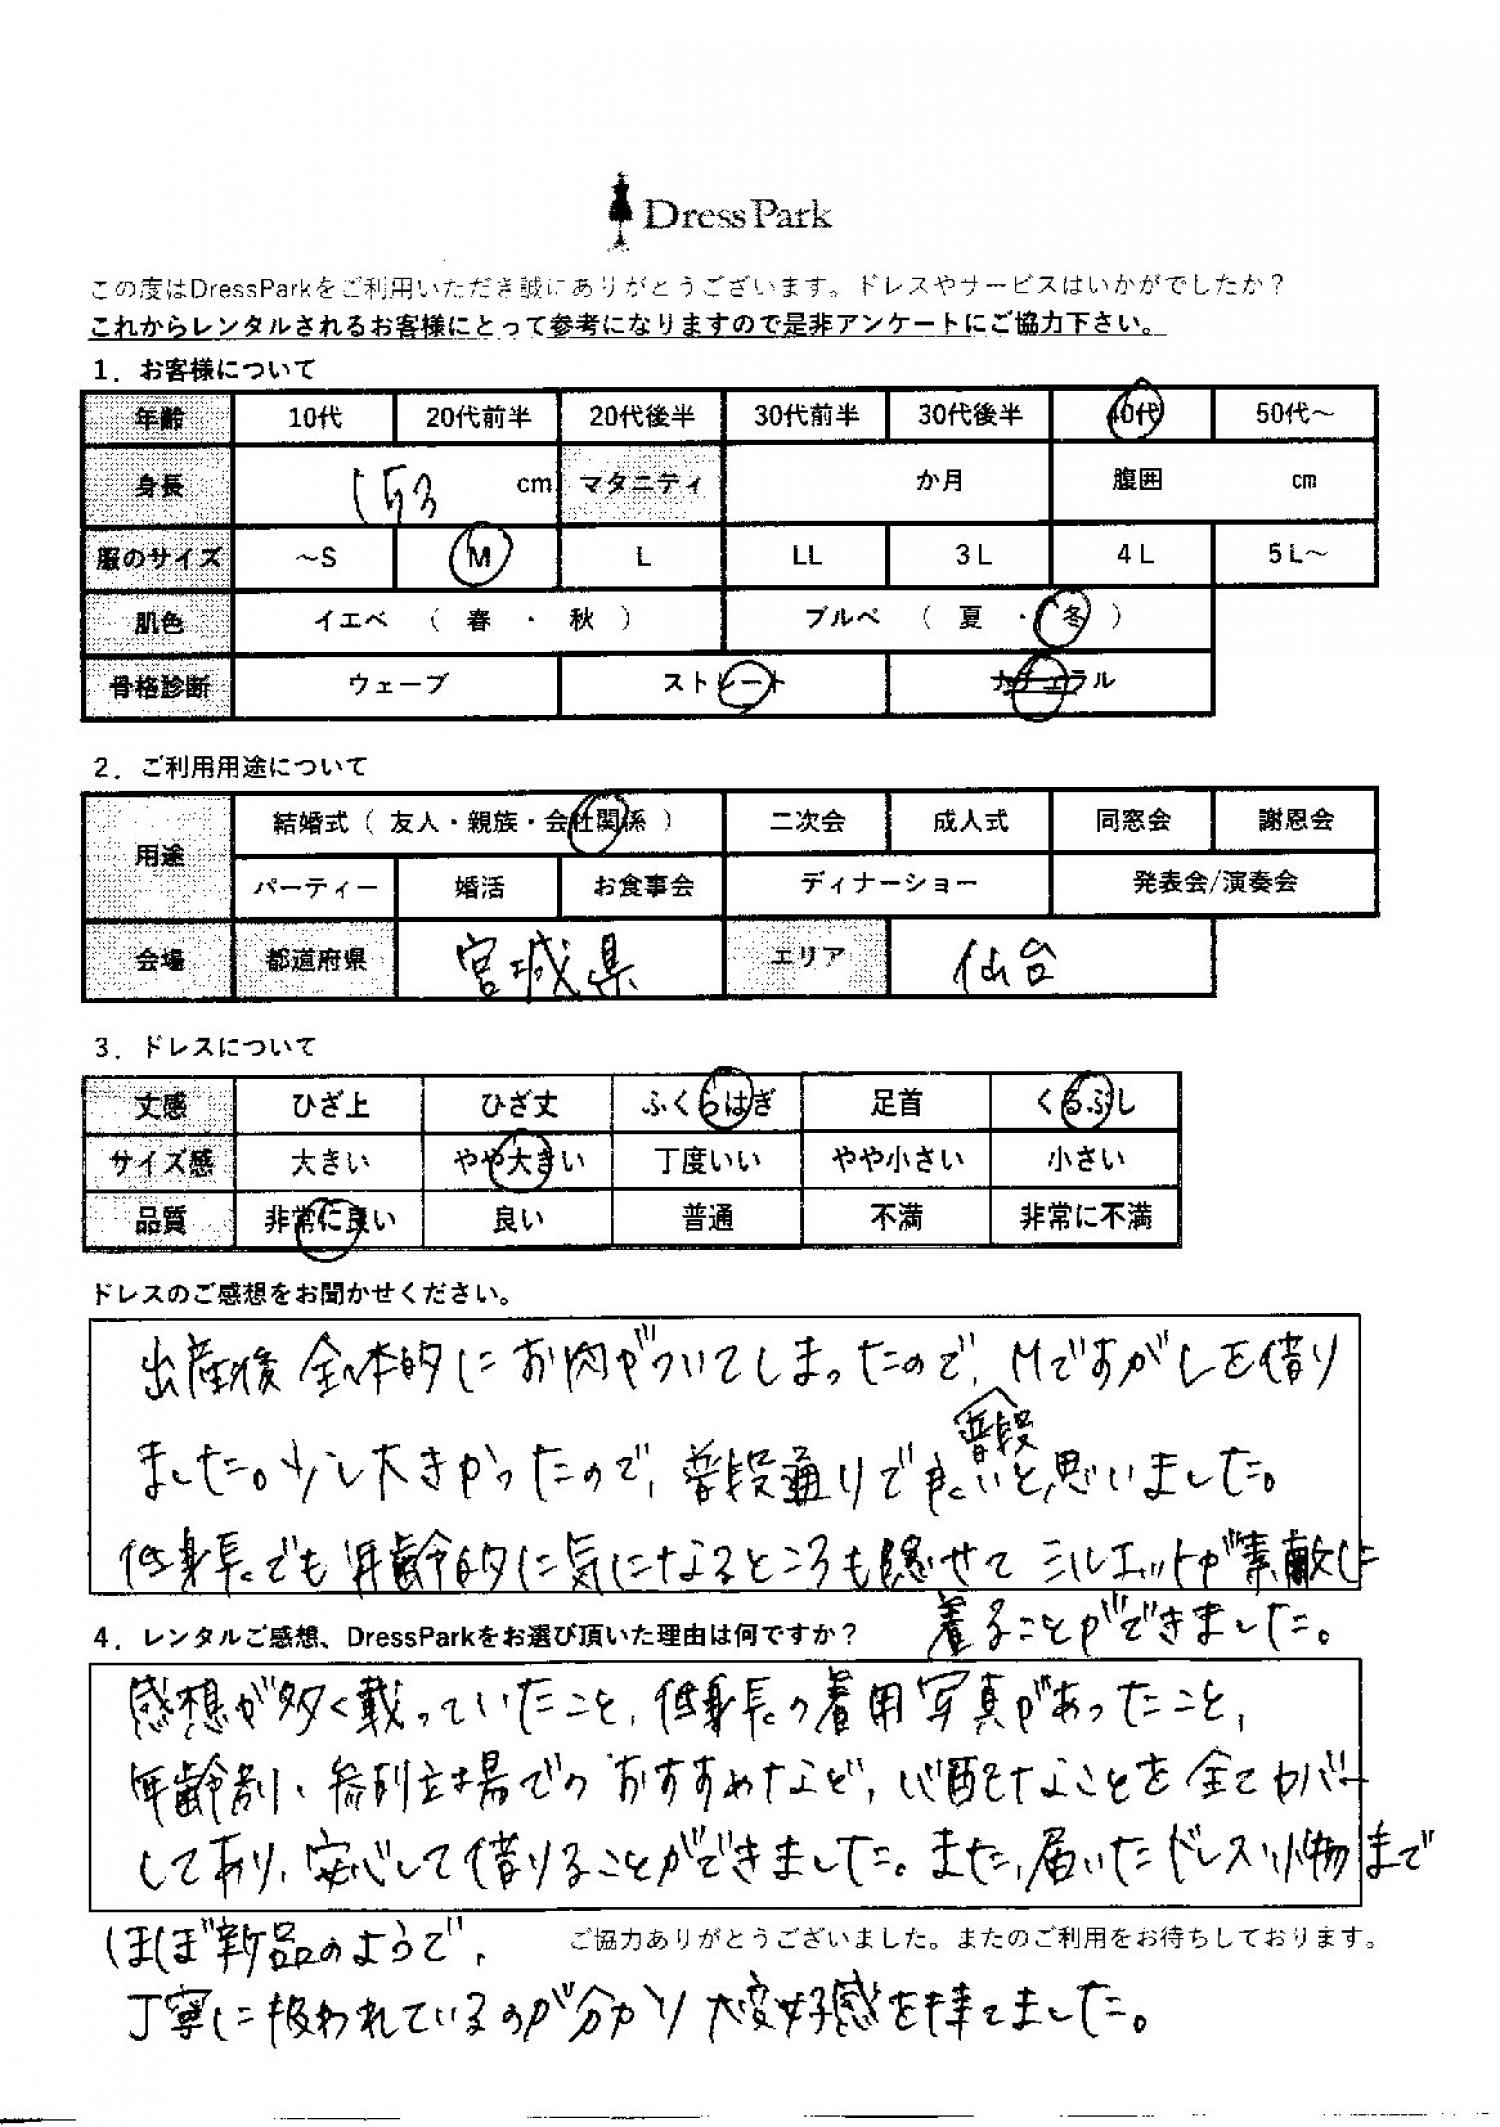 DressPark
この度はDressParkをご利用いただき誠にありがとうございます。ドレスやサービスはいかがでしたか？
これからレンタルされるお客様にとって参考になりますので是非アンケートにご協力下さい。
1．お客様について
年齢 10代 20代前半 20代後半 30代前半 30代後半 40代 50代～
身長 153 cm マタニティ か月 腹囲 cm
服のサイズ ～S M L LL 3L 4L 5L～
肌色 イエベ（ 春 ・ 秋 ） ブルベ （ 夏 ・ 冬 ）
骨格診断 ウェーブ ストレート ナチュラル
2．ご利用用途について
用途 結婚式（ 友人・親族・会社関係 ） 二次会 成人式 同窓会 謝恩会
パーティー 婚活 お食事会 ディナーショー 発表会/演奏会
会場 都道府県 宮城県 エリア 仙台
3．ドレスについて
丈感 ひざ上 ひざ丈 ふくらはぎ 足首 くるぶし
サイズ感 大きい やや大きい 丁度いい やや小さい 小さい
品質 非常に良い 良い 普通 不満 非常に不満
ドレスのご感想をお聞かせください。
出産後全体的にお肉がついてしまったので、MですがLを借り
普段
ました。少し大きかったので、普段通りで良いと思いました。
低身長でも年齢的に気になるところも隠せてシルエットが素敵に
着ることができました。
4．レンタルご感想、DressParkをお選び頂いた理由は何ですか？
感想が多く載っていたこと、低身長の着用写真があったこと、
年齢別、参列立場でのおすすめなど、心配なことを全てカバー
してあり、安心して借りることができました。また、届いたドレス、小物まで
ほぼ新品のようで、
ご協力ありがとうございました。またのご利用をお待ちしております。
丁寧に扱われているのが分かり大変好感を持てました。